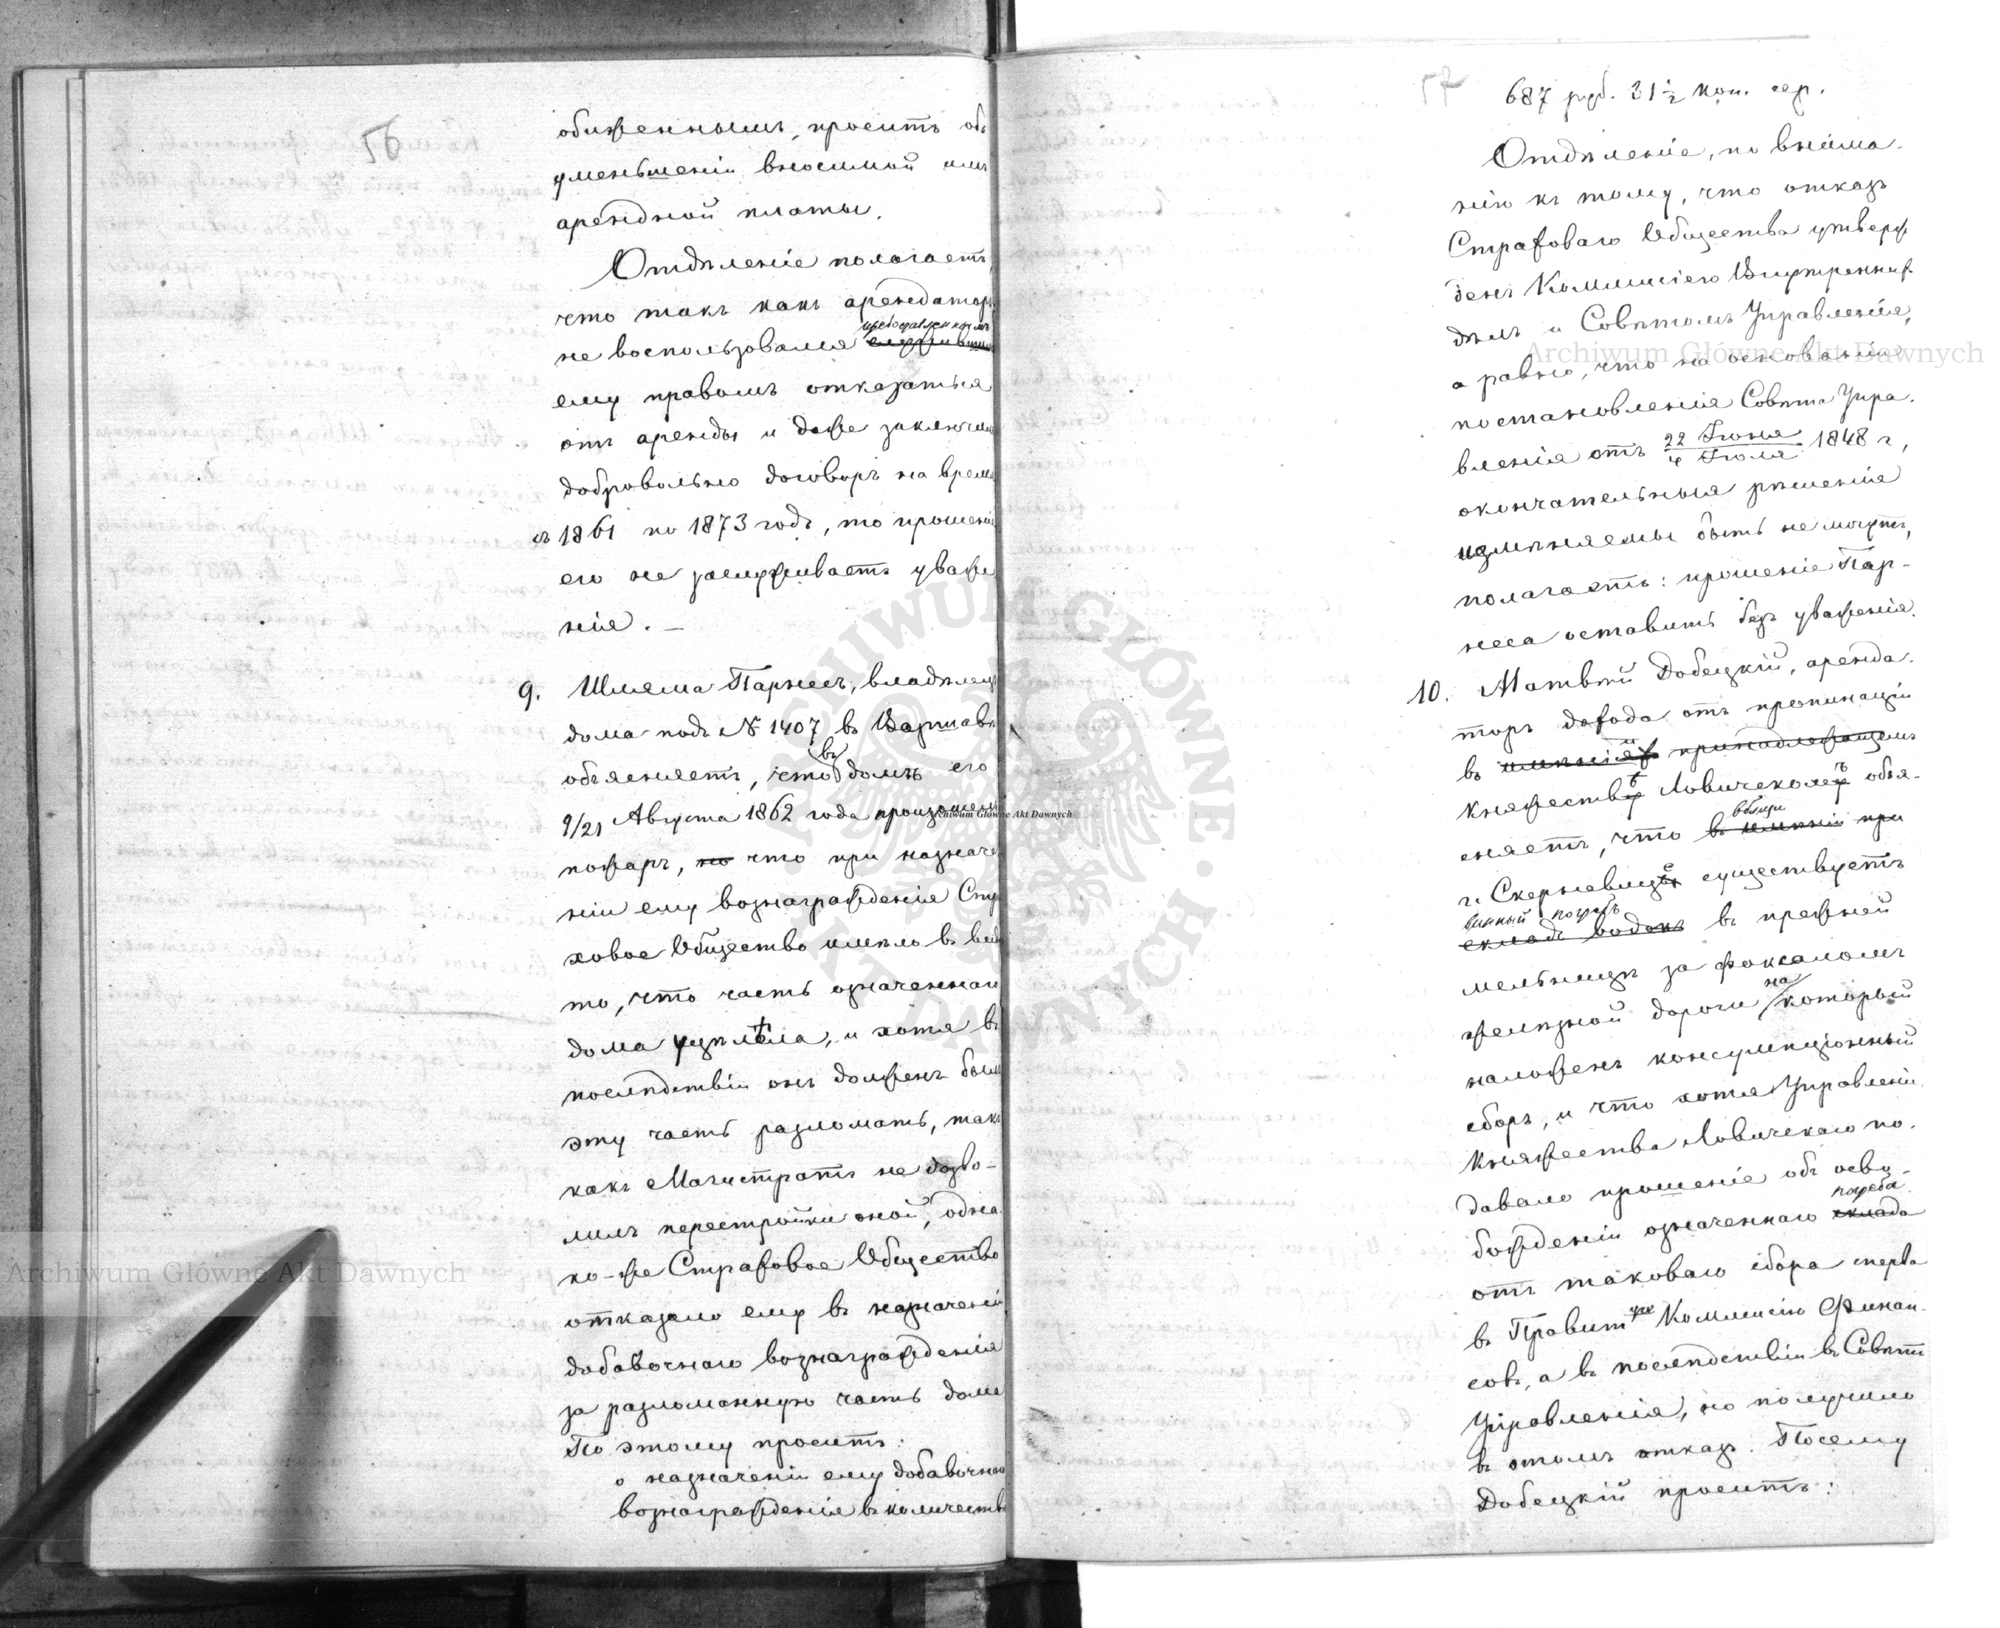 56
обиженнымъ, проситъ объ
уменьшеніи вносимой имъ
арендной платы.
Отдѣленіе полагаетъ,
что такъ какъ арендаторъ
предоставленнымъ
не воспользовался
ему правомъ отказаться
отъ аренды и даже заключилъ
добровольно договоръ на время
съ 1861 по 1873 годъ, то прошеніе
его не заслуживаетъ уваже
нія. —
9. Шлема Парнесъ, владѣлецъ
дома подъ № 1407 въ Варшавѣ
объясняетъ, что въ домѣ его
9/21 Августа 1862 года произошелъ
пожаръ, но что при назначе
ніи ему вознагражденія Стра
ховое Общество имѣло въ виду
то, что часть означеннаго
дома уцѣлѣла, и хотя въ
послѣдствіи онъ долженъ былъ
эту часть разломать, такъ
какъ Магистратъ не дозво-
лилъ перестройки оной, одна
ко-же Страховое Общество
отказало ему въ назначеніи
добавочнаго вознагражденія
за разломанную часть дома
По этому проситъ:
о назначеніи ему добавочнаго
вознагражденія въ количествѣ
57
687 руб. 31 ½ коп. сер.
Отдѣленіе, по внима-
нію къ тому, что отказъ
Страховаго Общества утверж
денъ Коммисіею Внутреннихъ
дѣлъ и Совѣтомъ Управленія,
а равно, что на основаніи
постановленія Совѣта Упра-
вленія отъ 22 Іюня / 4 Іюля 1848 г,
окончательныя рѣшенія
измѣняемы быть не могутъ,
полагаетъ: прошеніе Пар-
неса оставить безъ уваженія.
10. Матвѣй Добецкій, аренда-
торъ дохода отъ пропинаціи
въ имѣніи принадлежащемъ
Княжествѣ Ловичскомъ объя-
сняетъ, что
вблизи
въ имѣніи при
г. Скерневицъ существуетъ
винный погребъ
складъ водокъ въ прежней
мельницѣ за фоксаломъ
желѣзной дороги на который
наложенъ консумпціонный
сборъ, и что хотя Управленіе
Княжества Ловичскаго по-
давало прошеніе объ осво-
погреба
божденіи означеннаго склада
отъ таковаго сбора сперва
въ Правит Коммисію Финан-
совъ, а въ послѣдствіи въ Совѣтъ
Управленія, но получило
въ этомъ отказъ. Посему
Добецкій проситъ:
Archiwum Główne Akt Dawnych
Archiwum Główne Akt Dawnych
Archiwum Główne Akt Dawnych
ARCHIWUM GŁÓWNE · AKT DAWNYCH ·